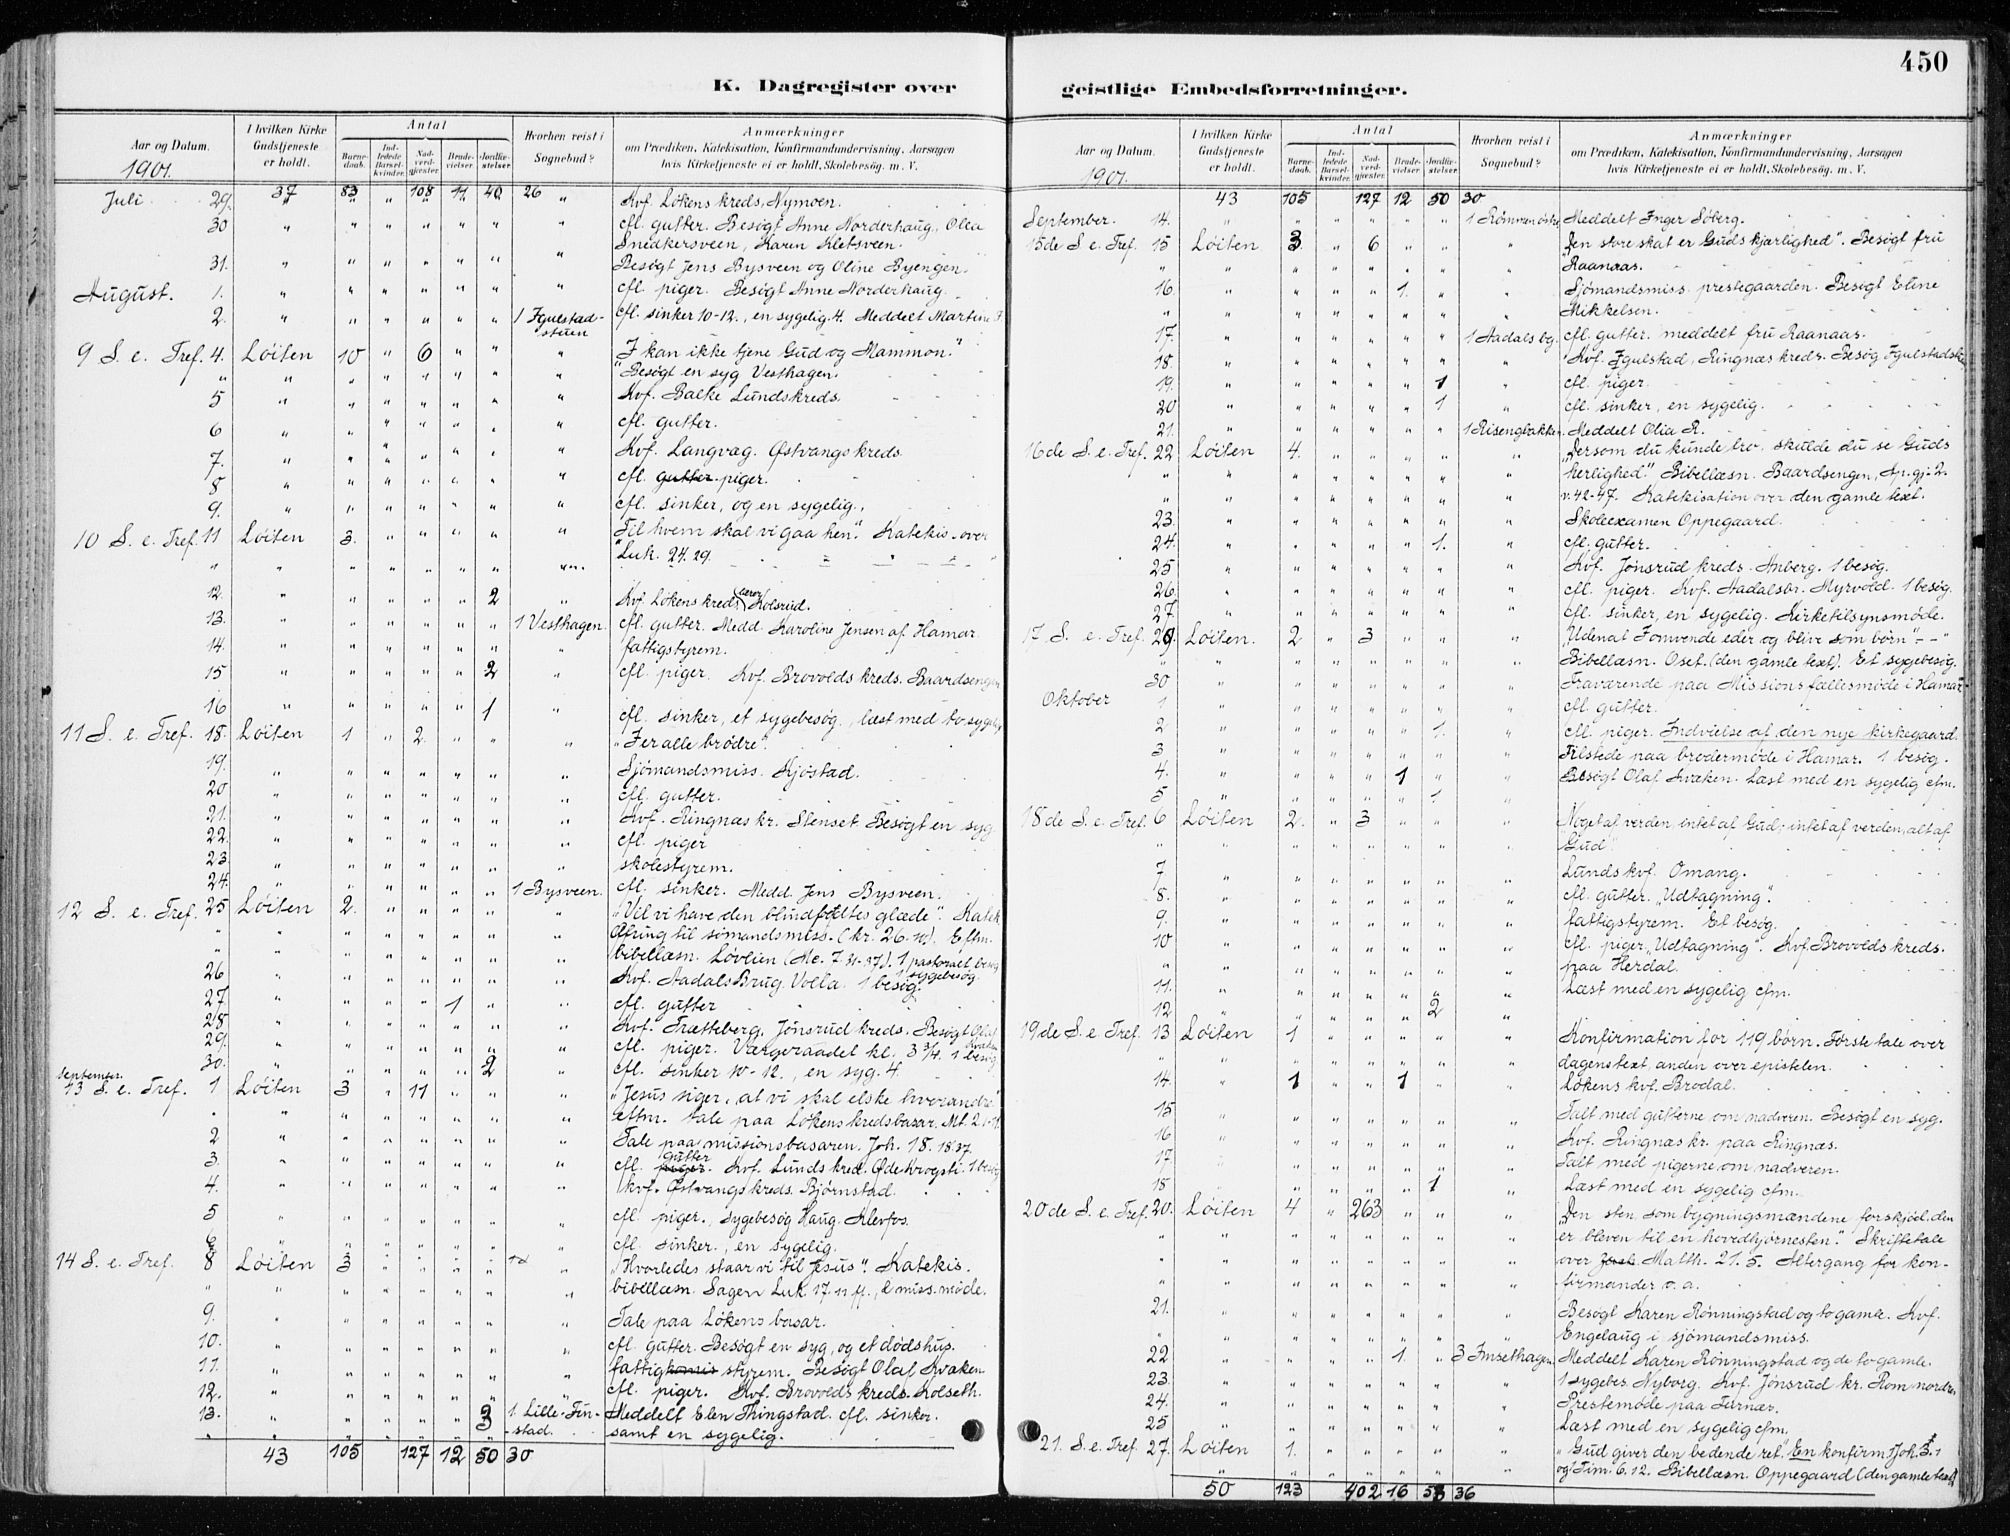 450
K. Dagregister over
geistlige Embedsforretninger.
Aar og Datum.
I hvilken Kirke Gudstjeneste er holdt.
Antal
Barnedaab.
Indledede Barselkvinder.
Nadverdgjester.
Brudevielser.
Jordfæstelser.
Hvorhen reist i Sognebud?
Anmærkninger
om Prædiken, Katekisation, Konfirmandundervisning, Aarsagen
hvis Kirketjeneste ei er holdt, Skolebesøg. m. V.
1901.
37 83 " 108 11 40 26
Juli 29. " " " " " " " Kvf. Løkens kreds, Nymoen.
30 " " " " " " " cfl. gutter. Besøgt Anne Norderhaug, Olea
Snedkersveen, Karen Kletsveen.
31. " " " " " " " Besøgt Jens Bysveen og Oline Byengen.
August. 1. " " " " " " " cfl. piger. Besøgt Anne Norderhaug.
2. " " " " " " 1 Igulstad- cfl. sinker 10-12., en sygelig. 4. Meddelt Martine I
stuen
9 S. e. Tref. 4. Løiten 10 " 6 " " " "I kan ikke tjene Gud og Mammon."
" " " " " " " " Besøgt en syg Vesthagen.
5 " " " " " " " Kvf. Balke Lundskreds.
6 " " " " " " " cfl. gutter.
7. " " " " " " " Kvf. Langvag. Østvangs kreds.
8 " " " " " " " cfl. gutter. piger.
9. " " " " " " " cfl. sinker, og en sygelig.
10 S. e. Tref. 11 Løiten 3. " " " " " "Til hvem skal vi gaa hen". Katekis. over
Luk. 24. 29.
12. " " " " " 2 " Kvf. Løkens kreds, Kolsrud.
13. " " " " " " 1 Vesthagen. cfl. gutter. Medd. Karoline Jensen af Hamar
14. " " " " " " " fattigstyrem.
15 " " " " " 2 " cfl. piger. Kvf. Brovolds kreds. Baardsengen
16 " " " " " 1 " cfl. sinker, et sygebesøg., læst med to sygelig.
11 S. e. Tref. 18. Løiten 1 " 2. " " " "I er alle brødre".
19. " " " " " " " Sjømandsmiss. Kjøstad.
20 " " " " " " " cfl. gutter.
21. " " " " " " " Kvf. Ringnæs kr. Stenset. Besøgt en syg
22. " " " " " " " cfl. piger
23. " " " " " " " skolestyrem.
24. " " " " " " 1 Bysveen. cfl. sinker. Medd. Jens Bysveen.
12 S. e. Tref. 25 Løiten 2. " " " " " "Vil vi have den blindfødtes glæde". Katek
Ofring til sømandsmiss. (kr. 26.10). Eftm.
bibellæsn. Løvlien (Mc. 7. 31-37). 1 pastoralt besøg
26 " " " " " " " Kvf. Aadals Brug. Volla. 1 besøg. 1 sygebesøg.
27 " " " " 1 " " cfl. gutter
28 " " " " " " " Kvf. Trætteberg, Jønsrud kreds. Besøgt Olaf Kvaken
29. " " " " " " " cfl. piger. Værgeraadet kl. 3 3/4. 1 besøg
30. " " " " " 2 " cfl. sinker 10-12., en syg. 4.
September.
13 S. e. Tref. 1 Løiten 3 " 11 " " " "Jesus siger, at vi skal elske hverandre"
eftm. tale paa Løkens kredsbasar. Mt. 21-11.
2 " " " " " " " Tale paa missionsbasaren. Joh. 18. 18.37.
3. " " " " " " " cfl. piger gutter. Kvf. Lunds kred. Øde Krogsti. 1 besøg
4. " " " " " " " kvf. Østvangs kreds. Bjørnstad.
5 " " " " " " " cfl. piger., sygebesøg Haug. Klevfos.
6 " " " " " " " cfl. sinker., en sygelig.
14 S. e. Tref. 8 Løiten 3 " " " " " "Hvorledes staar vi til Jesus". Katekis.
bibellæsn. Sagen Luk. 17. 11 ff., & miss. møde.
9. " " " " " " " Tale paa Løkens basar.
10. " " " " " " " cfl. gutter. Besøgt en syg, og et dødshus.
11. " " " " " " " fattigkomis styrem. Besøgt Olaf Kvaken.
12. " " " " " " " cfl. piger. Kvf. Brovolds kreds. Kolseth.
13. " " " " " 3 1. Lille-Fin- Meddelt Elen Thingstad. cfl. sinker.
stad. samt en sygelig.
43 105 127 12 50 30
Aar og Datum.
I hvilken Kirke Gudstjeneste er holdt.
Antal
Barnedaab.
Indledede Barselkvinder.
Nadverdgjester.
Brudevielser.
Jordfæstelser.
Hvorhen reist i Sognebud?
Anmærkninger
om Prædiken, Katekisation, Konfirmandundervisning, Aarsagen
hvis Kirketjeneste ei er holdt, Skolebesøg. m. V.
1901.
43 105 127 12 50 30
September. 14. " " " " " " 1 Rømmen østre Meddelt Inger Søberg.
15de S. e. Tref. 15 Løiten 3. " 6 " " " "Den store skat er Guds kjærlighed". Besøgt fru
Raanaas.
16 " " " " 1. " " Sjømandsmiss. prestegaarden. Besøgt Eline
Mikkelsen.
17. " " " " " " 1 Aadals bg. cfl. gutter. meddelt fru Raanaas.
18. " " " " " " " Kvf. Igulstad, Ringnæs kreds. Besøg Igulstadsk.
19. " " " " " 1 " cfl. piger.
20 " " " " " 1 " cfl. sinker, en sygelig.
21. " " " " " " 1 Risengbakken. Meddelt Olia R.
16de S. e. Tref. 22 Løiten 4. " " " " " "Dersom du kunde tro, skulde du se Guds
herlighed". Bibellæsn. Baardsengen, Ap. gj. 2.
v. 42-47. Katekisation over den gamle text.
23. " " " " " " " Skoleexamen Oppegaard.
24. " " " " " 1. " cfl. gutter.
25 " " " " " " " Kvf. Jønsrud kreds. Anberg. 1 besøg.
26. " " " " " " " cfl. piger. Kvf. Aadalsbr. Myrvold. 1 besøg.
27. " " " " " " " cfl. sinker, en sygelig. Kirketilsynsmøde.
17 S. e. Tref. 29 Løiten. 2 " 3 " " " "Uden at I omvende eder og blive som børn" - - "
Bibellæsn. Oset. (den gamle text). Et sygebesøg.
30 " " " " " " " Fraværende paa Missionsfællesmøde i Hamar
Oktober 1 " " " " " " " cfl. gutter.
2 " " " " " 1. " cfl. piger. Indvielse af den nye kirkegaard.
3 " " " " " " " Tilstede paa brodermøde i Hamar. 1 besøg.
4. " " " " 1 " " Besøgt Olaf Kvaken. Læst med en sygelig cfm.
5 " " " " " 1. "
18de S. e. Tref. 6 Løiten 2. " 3 " " " Noget af verden, intet af Gud; intet af verden, alt af
Gud!
7 " " " " " " " Lunds kvf. Omang.
8. " " " " " " " cfl. gutter "Udtagning".
9. " " " " " " " fattigstyrem. Et besøg.
10 " " " " " " " cfl. piger "Udtagning". Kvf. Brovolds kreds.
paa Herdal.
11. " " " " " " " Læst med en sygelig cfm.
12 " " " " " 2 "
19de S. e. Tref. 13 Løiten 1 " " " " " Konfirmation for 119 børn. Første tale over
dagens text, anden over epistelen.
14. " 1 " " 1 " " Løkens kvf. Brodal.
15 " " " " " " " Talt med gutterne om nadveren. Besøgt en syg.
16 " " " " " " " Kvf. Ringnæs kr. paa Ringnæs.
17 " " " " " " " Talt med pigerne om nadveren.
18 " " " " " 1 " Læst med en sygelig cfm.
20de S. e. Tref. 20. Løiten 4 " 263 " " " "Den sten, som bygningsmændene forskjød, den
er bleven til en hovedhjørnesten." Skriftetale
over Matth. 21. 5. Altergang for kon-
firmander o. a.
21. " " " " " " " Besøgt Karen Rønningstad og to gamle. Kvf.
Engelaug i sjømandsmiss.
22 " " " " 1. " 3 Imsethagen. Meddelt Karen Rønningstad og de to gamle.
23. " " " " " " " 1 sygebes. Nyborg. Kvf. Jønsrud kr. Rom nordre
24. " " " " " " " Prestemøde paa Turnær.
25 " " " " " " " Læst med en sygelig cfm.
21. S. e. Tref. 27. Løiten 1. " " " " " "Gud giver den bedende ret. En konfirm. 1 Joh. 3. 1
og 1 Tim. 6. 12. Bibellæsn. Oppegaard (den gamle text)
50 123 402 16 58 36